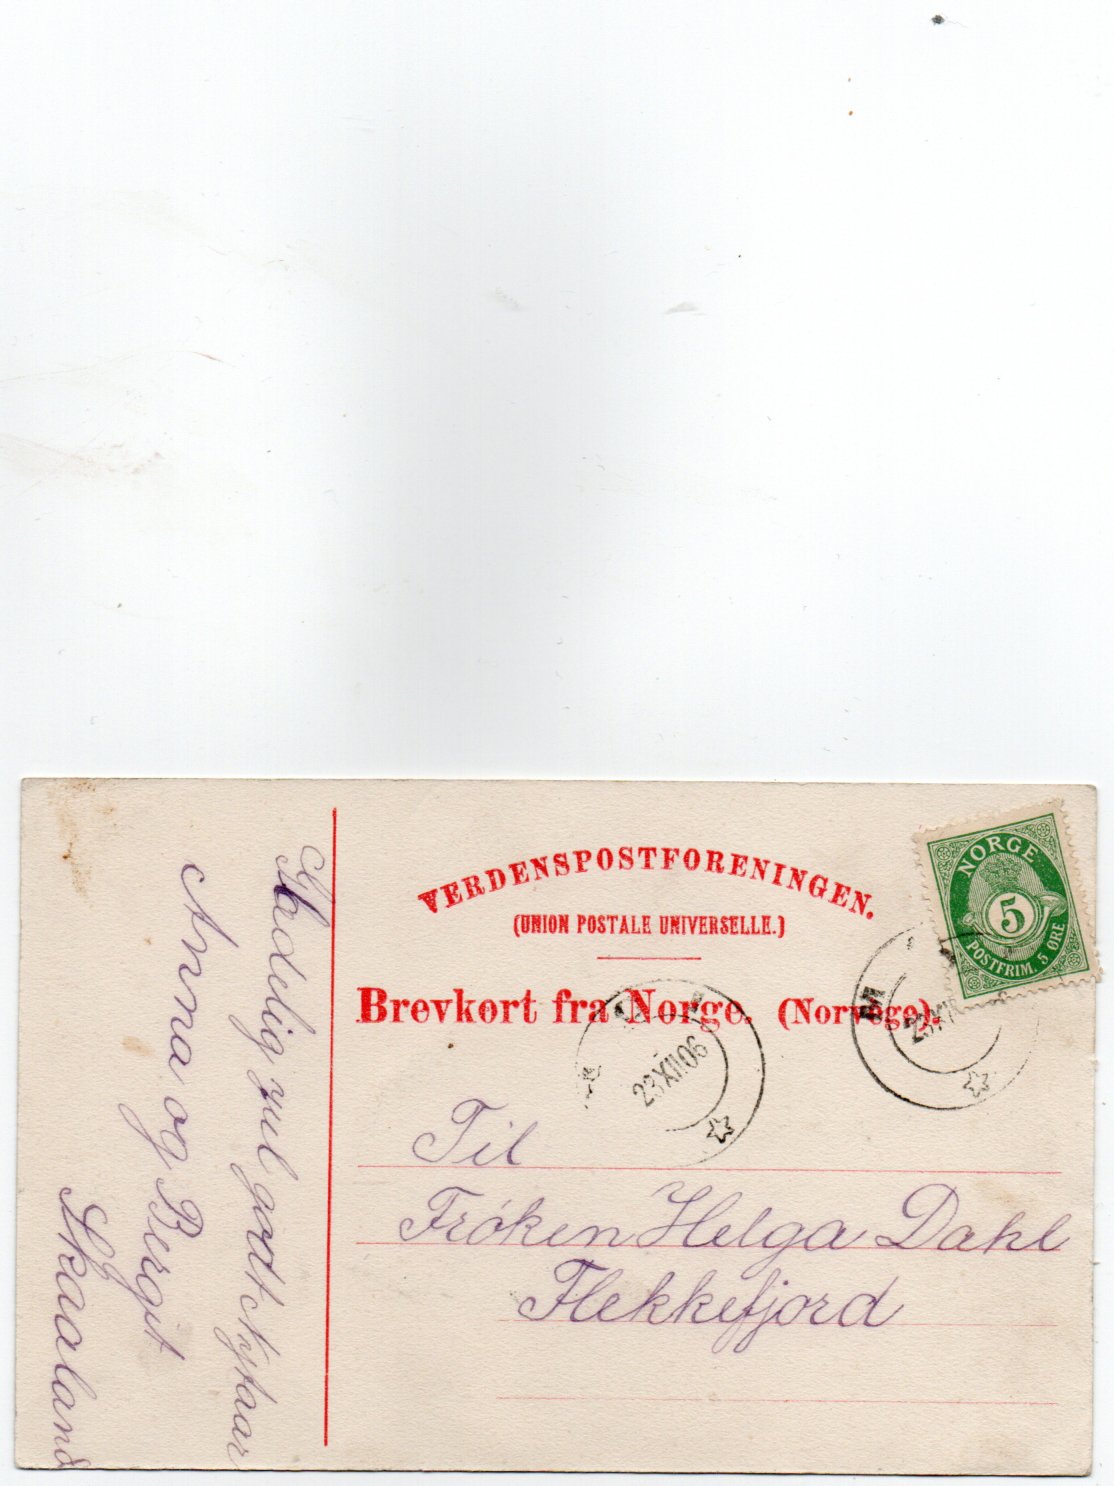 VERDENSPOSTFORENINGEN.
(UNION POSTALE UNIVERSELLE.)
Brevkort fra Norge. (Norvége).
NORGE
5
POSTFRIM. 5 ØRE
23 XII 06
Til
Frøken Helga Dahl
Flekkefjord
Glædelig jul godt Nytaar
Anna og Bergit
Skaaland